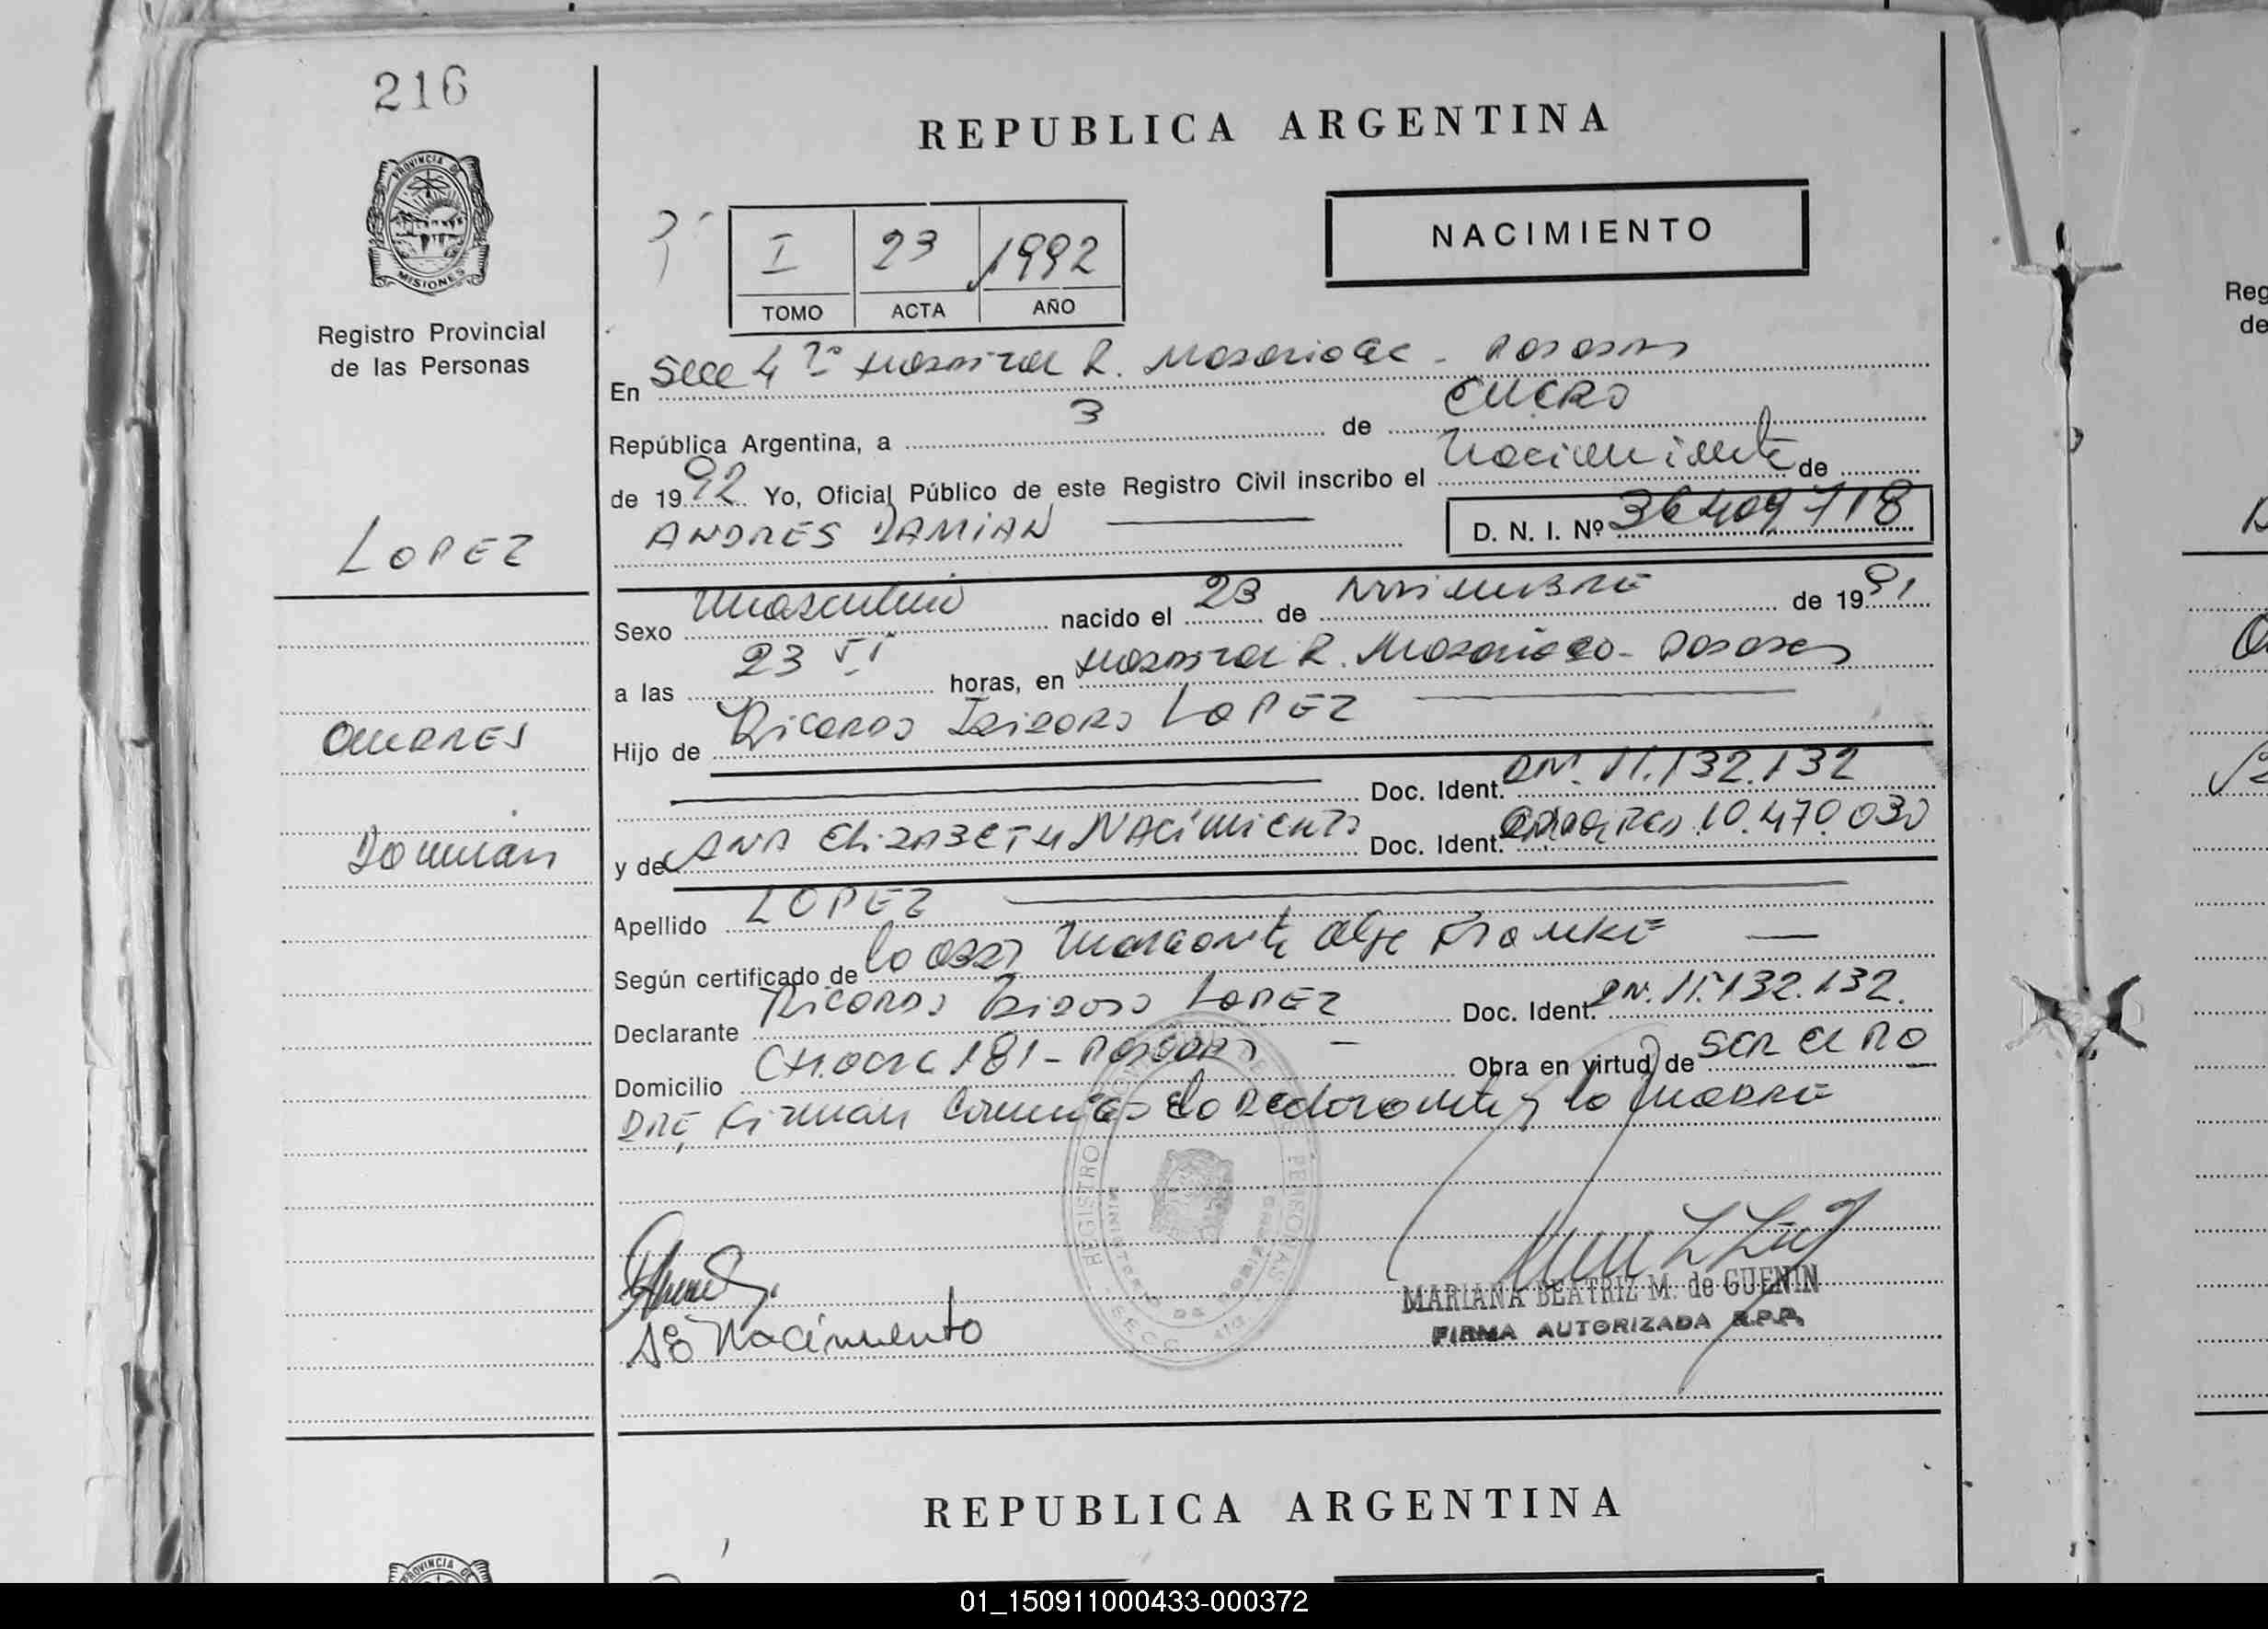 216
PROVINCIA DE
MISIONES
Registro Provincial
de las Personas
LOPEZ
Andres
Damian
REPUBLICA ARGENTINA
NACIMIENTO
I 23 1992
TOMO ACTA AÑO
En Secc 4 Hospital R. Madariaga - Posadas
República Argentina, a 3 de ENERO
de 1992 Yo, Oficial Público de este Registro Civil inscribo el Nacimiento de
ANDRES DAMIAN
D. N. I. Nº 36409718
Sexo Masculino nacido el 23 de Noviembre de 1991
a las 23 horas, en Hospital R. Madariaga - Posadas
Hijo de Ricardo Isidoro LOPEZ
Doc. Ident. DNI. 11.132.132
y de ANA ELIZABETH NACIMIENTO Doc. Ident. 10.470.030
Apellido LOPEZ
Según certificado de la obst Margarita Olga
Declarante Ricardo Isidoro LOPEZ Doc. Ident. DN. 11.132.132.
Domicilio 181 - Posadas Obra en virtud de SER el PA
DRE, Firman conmigo el declarante y la madre
A E Nacimiento
REGISTRO DE PERSONAS
MINISTERIO DE GOBIERNO
SECC. 4ta.
MARIANA BEATRIZ M. de GUENIN
FIRMA AUTORIZADA R.P.P.
REPUBLICA ARGENTINA
PROVINCIA DE
Reg
de
01_150911000433-000372